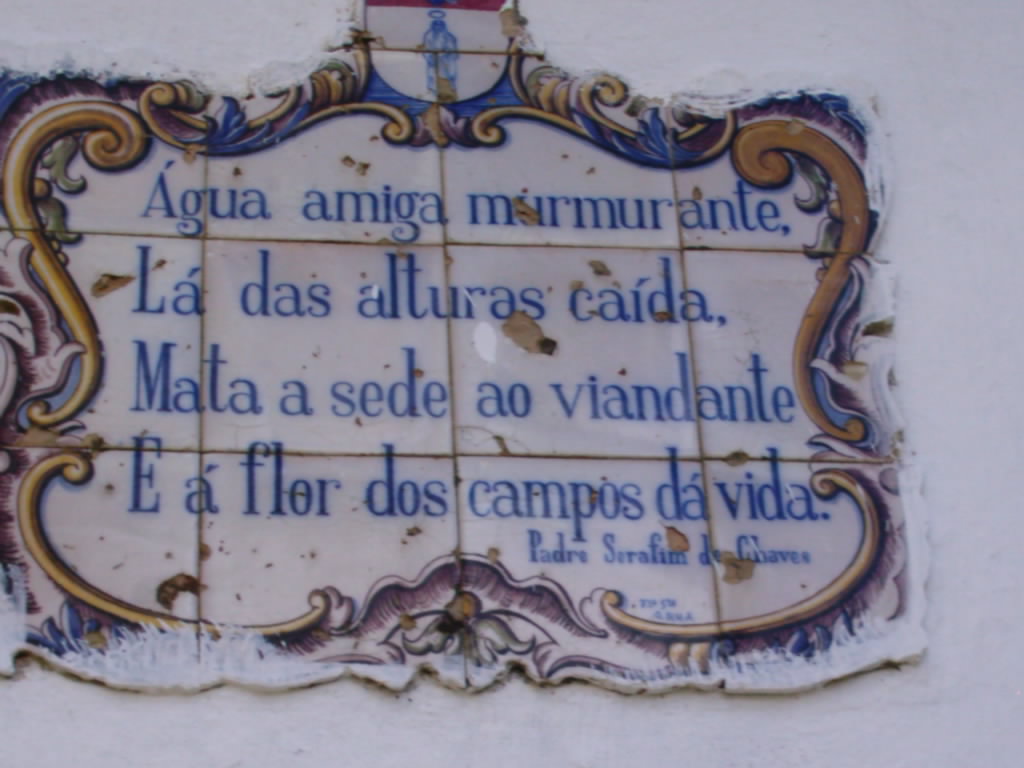 Água amiga murmurante,
Lá das alturas caída,
Mata a sede ao viandante
E á flor dos campos dá vida.
Padre Serafim de Chaves